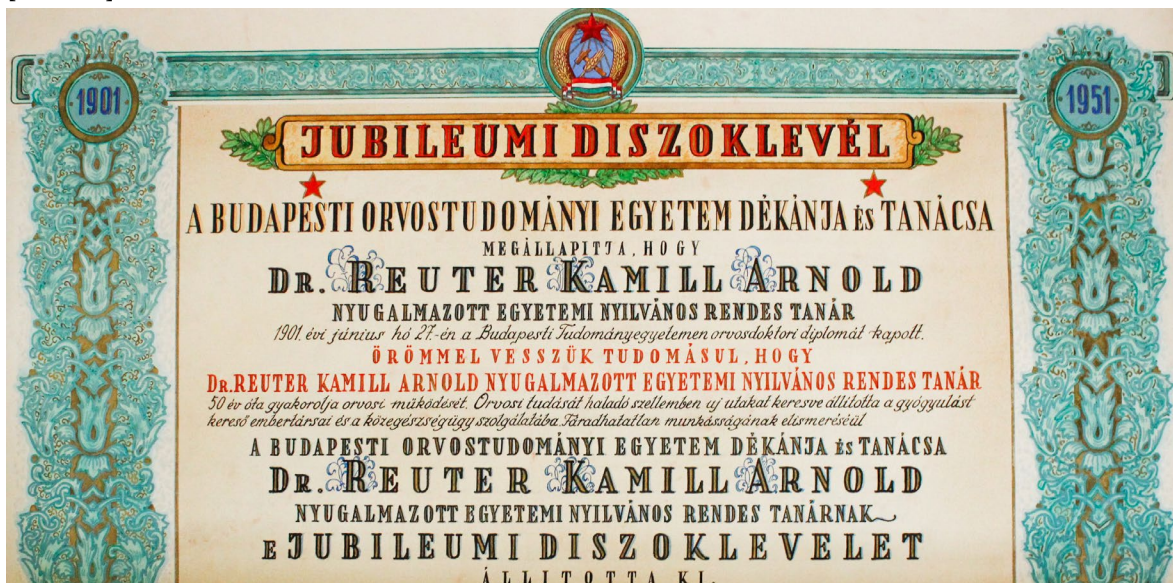 1901
1951
JUBILEUMI DISZOKLEVÉL
A BUDAPESTI ORVOSTUDOMÁNYI EGYETEM DÉKÁNJA ÉS TANÁCSA
MEGÁLLAPITJA, HOGY
DR. REUTER KAMILL ARNOLD
NYUGALMAZOTT EGYETEMI NYILVÁNOS RENDES TANÁR
1901. évi június hó 27.-én a Budapesti Tudományegyetemen orvosdoktori diplomát kapott.
ÖRÖMMEL VESSZÜK TUDOMÁSUL, HOGY
DR. REUTER KAMILL ARNOLD NYUGALMAZOTT EGYETEMI NYILVÁNOS RENDES TANÁR
50 év óta gyakorolja orvosi működését. Orvosi tudását haladó szellemben uj utakat keresve állitotta a gyógyulást
kereső embertársai és a közegészségügy szolgálatába. Fáradhatatlan munkásságának elismeréséül
A BUDAPESTI ORVOSTUDOMÁNYI EGYETEM DÉKÁNJA ÉS TANÁCSA
DR. REUTER KAMILL ARNOLD
NYUGALMAZOTT EGYETEMI NYILVÁNOS RENDES TANÁRNAK
E JUBILEUMI DISZOKLEVELET
ÁLLITOTTA KI.